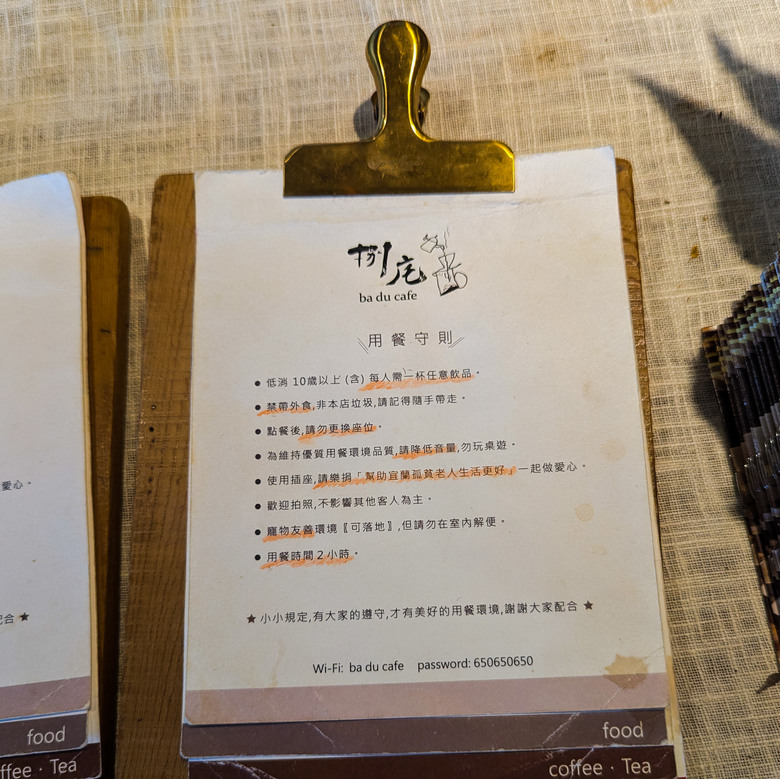 捌虎
ba du cafe
用餐守則
● 低消 10歲以上 (含) 每人需一杯任意飲品。
● 禁帶外食,非本店垃圾,請記得隨手帶走。
● 點餐後,請勿更換座位。
● 為維持優質用餐環境品質,請降低音量,勿玩桌遊。
● 使用插座,請樂捐「幫助宜蘭孤貧老人生活更好」一起做愛心。
● 歡迎拍照,不影響其他客人為主。
● 寵物友善環境〖可落地〗,但請勿在室內解便。
● 用餐時間2小時。
★ 小小規定,有大家的遵守,才有美好的用餐環境,謝謝大家配合 ★
Wi-Fi: ba du cafe password: 650650650
food
coffee · Tea
愛心。
合 ★
food
ffee · Tea